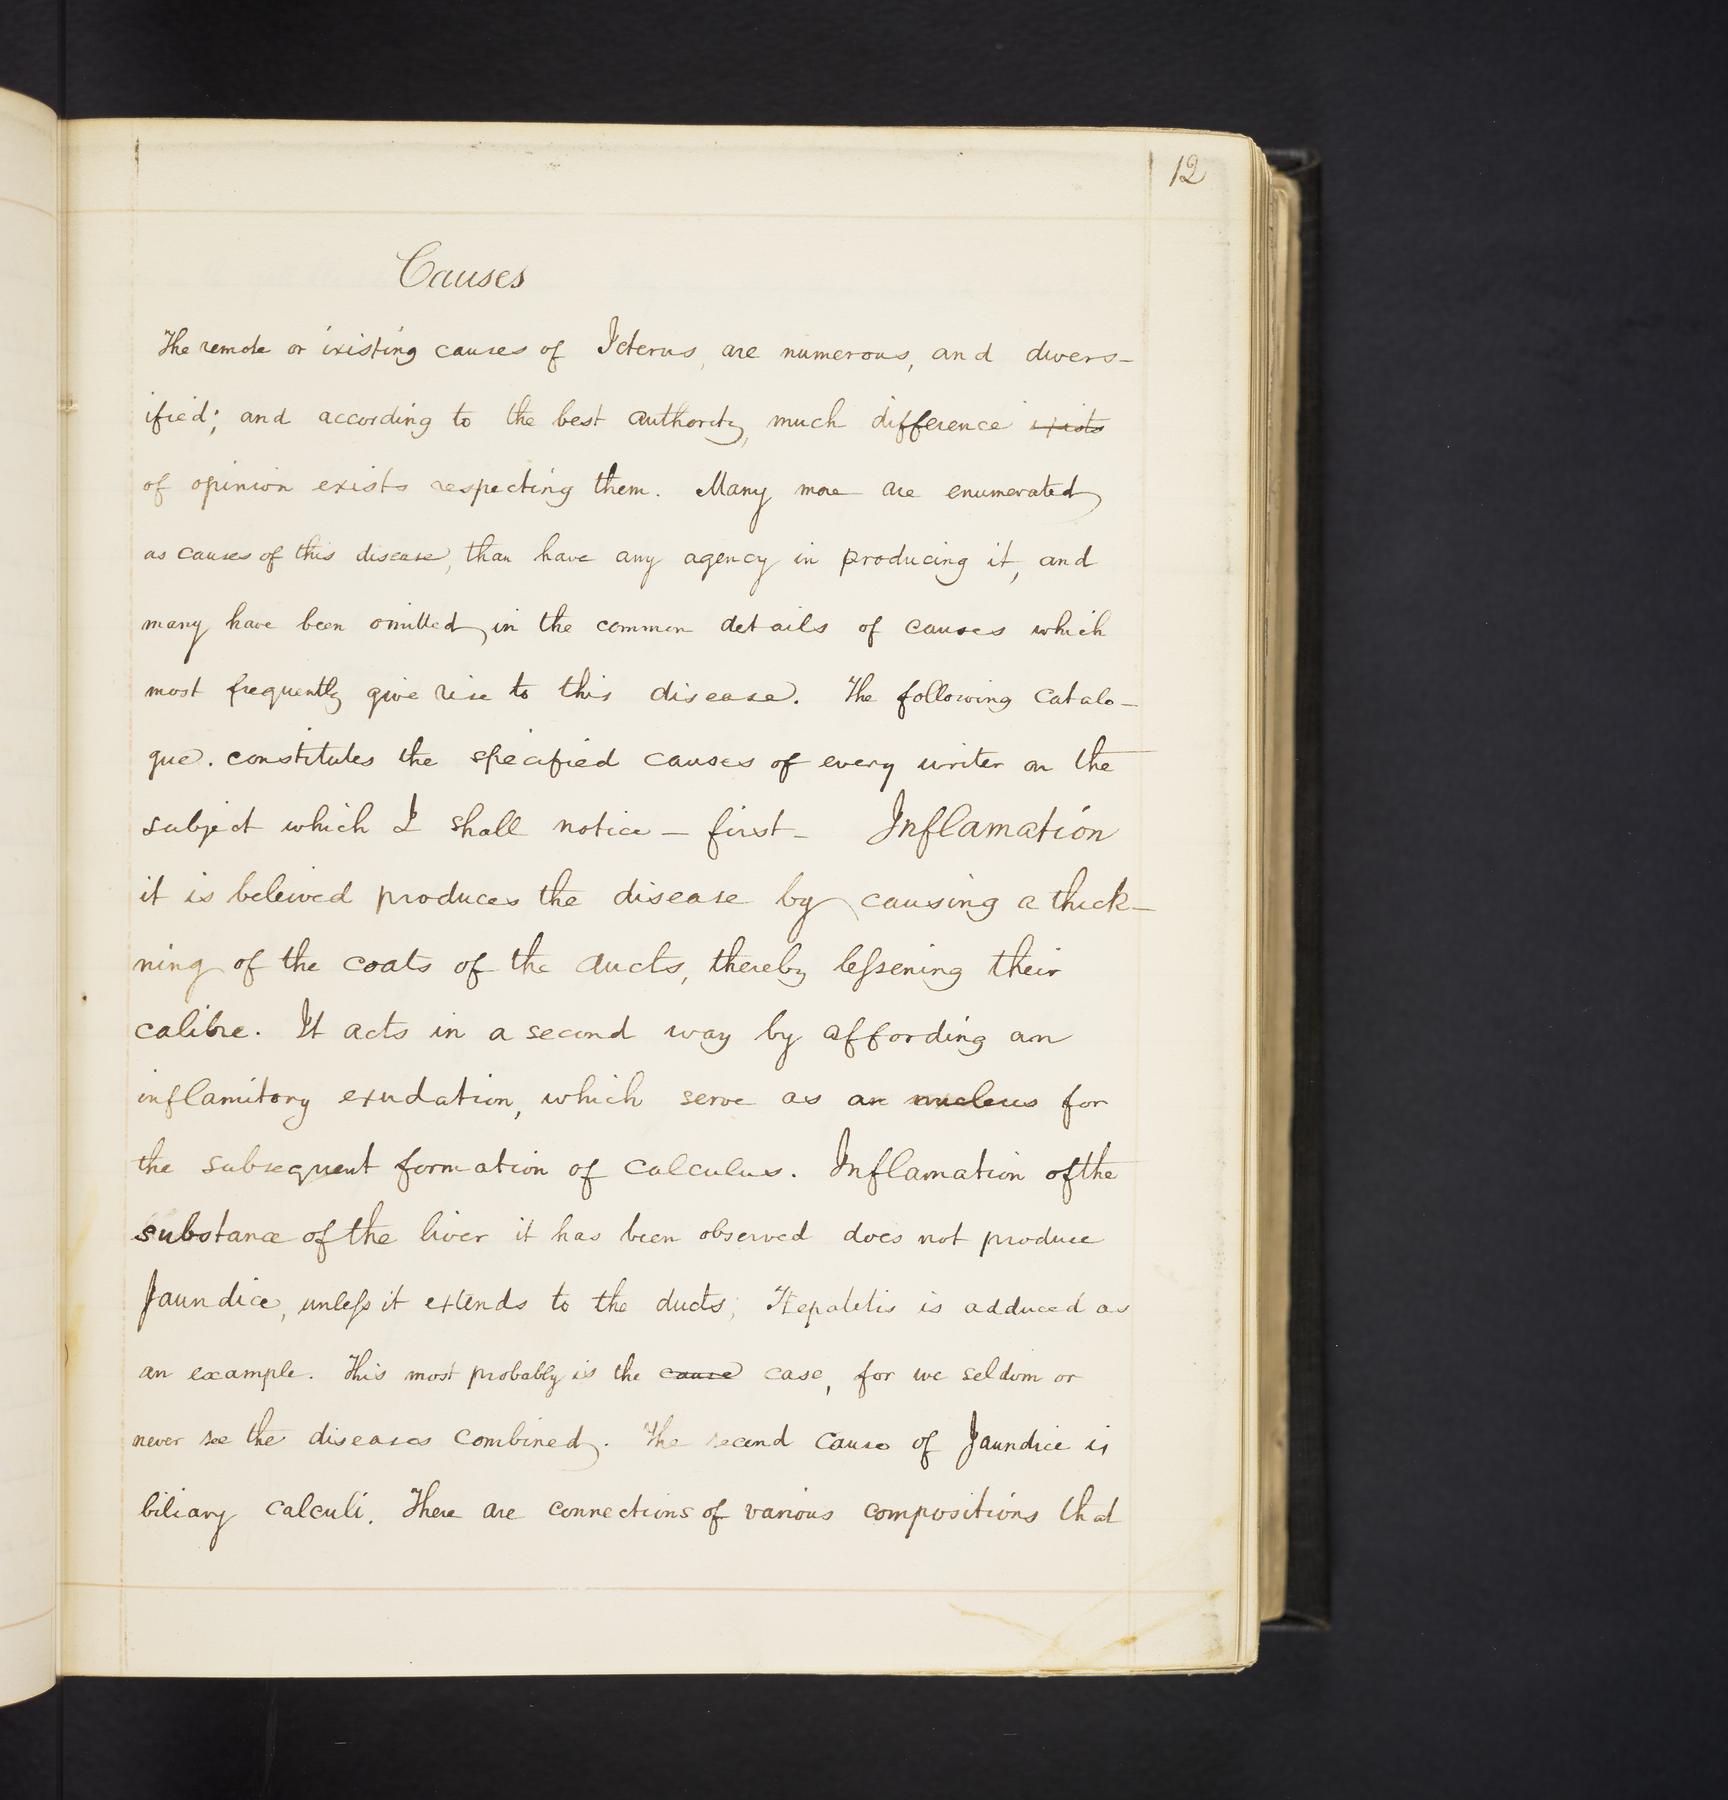 12
Causes
The remote or ixisting causes of Icterus, are numerous, and divers-
ified; and according to the best authority, much difference exists
of opinion exists respecting them. Many more are enumerated
as causes of this disease, than have any agency in producing it, and
many have been omitted, in the common details of causes which
most frequently give rise to this disease. The following catalo-
gue. constitutes the specified causes of every writer on the
subject which I shall notice - first - Inflamation
it is beleived produces the disease by causing a thick-
ning of the coats of the ducts, thereby lessening their
calibre. It acts in a second way by affording an
inflamitory exudation, which serve as an nucleus for
the subsequent formation of calculus. Inflamation of the
substance of the liver it has been observed does not produce
Jaundice, unless it extends to the ducts; Hepatitis is adduced as
an example. This most probably is the cause case, for we seldom or
never see the diseases combined. The second cause of Jaundice is
biliary calculi. There are connections of various compositions that